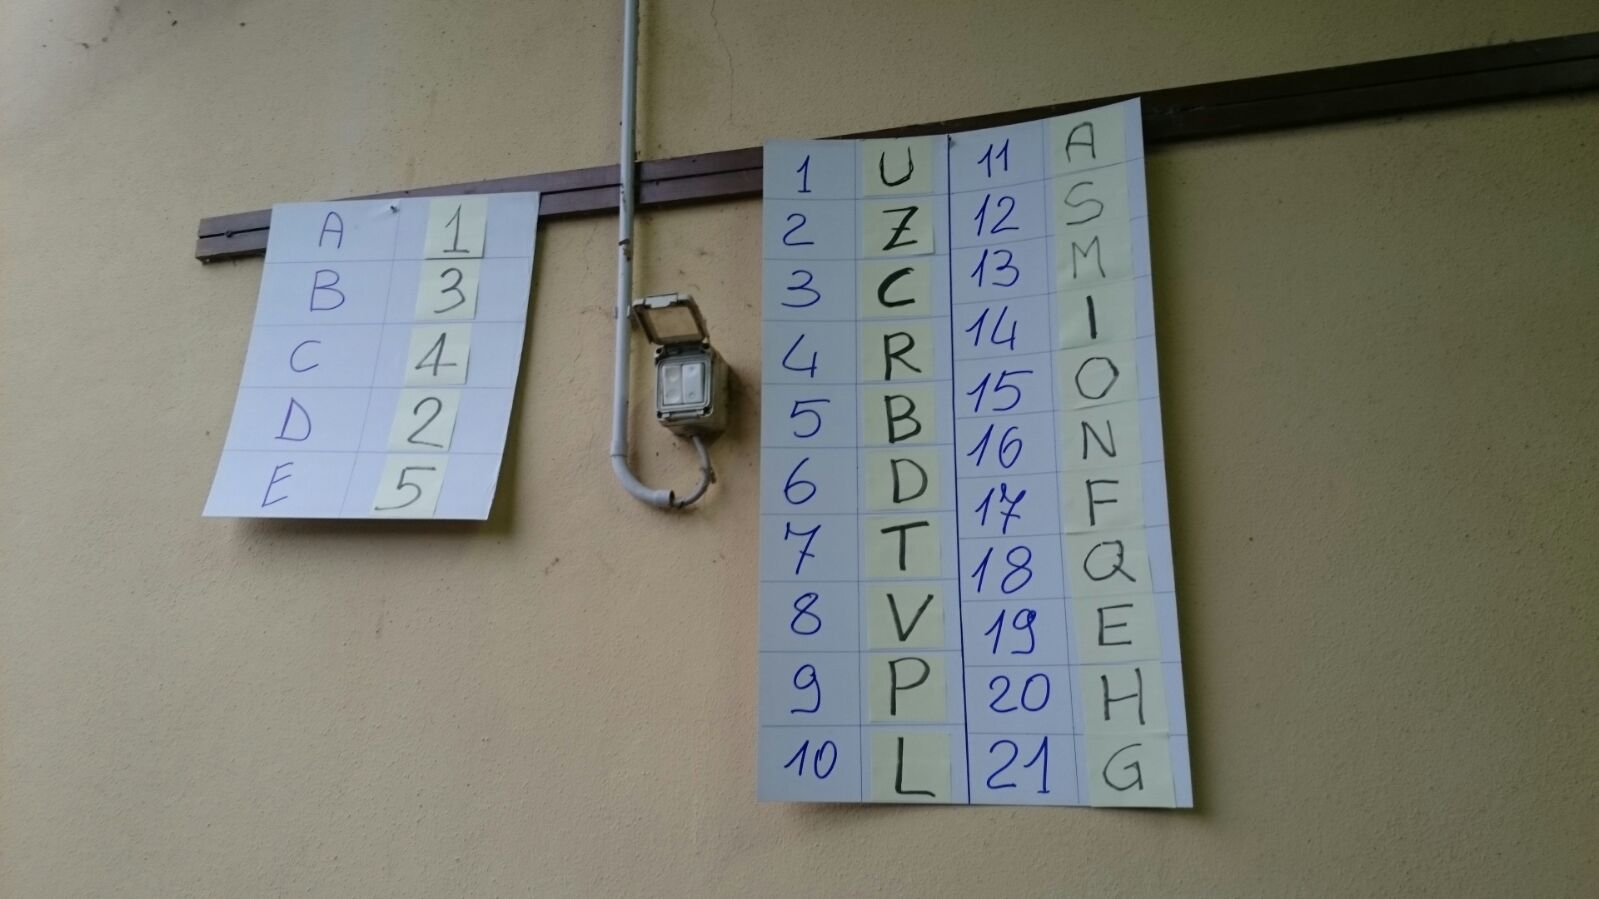 A 1
B 3
C 4
D 2
E 5
1 U
2 Z
3 C
4 R
5 B
6 D
7 T
8 V
9 P
10 L
11 A
12 S
13 M
14 I
15 O
16 N
17 F
18 Q
19 E
20 H
21 G